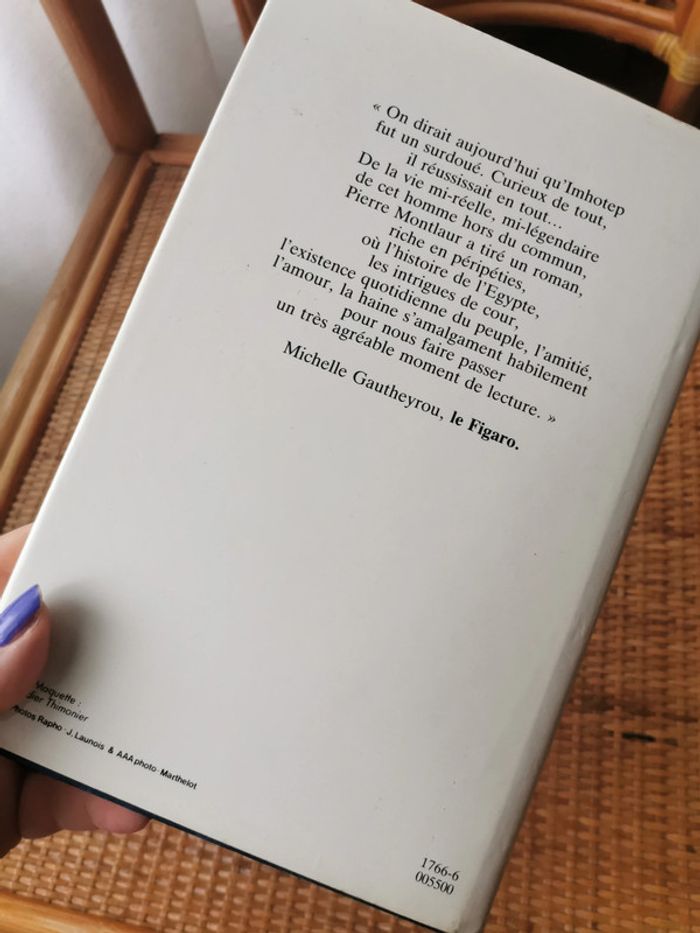 « On dirait aujourd'hui qu'Imhotep
fut un surdoué. Curieux de tout,
il réussissait en tout...
De la vie mi-réelle, mi-légendaire
de cet homme hors du commun,
Pierre Montlaur a tiré un roman,
riche en péripéties,
où l'histoire de l'Egypte,
les intrigues de cour,
l'existence quotidienne du peuple, l'amitié,
l'amour, la haine s'amalgament habilement
pour nous faire passer
un très agréable moment de lecture. »
Michelle Gautheyrou, le Figaro.
Maquette :
Thimonier
Rapho - J. Launois & AAA photo - Marthelot
1766-6
005500